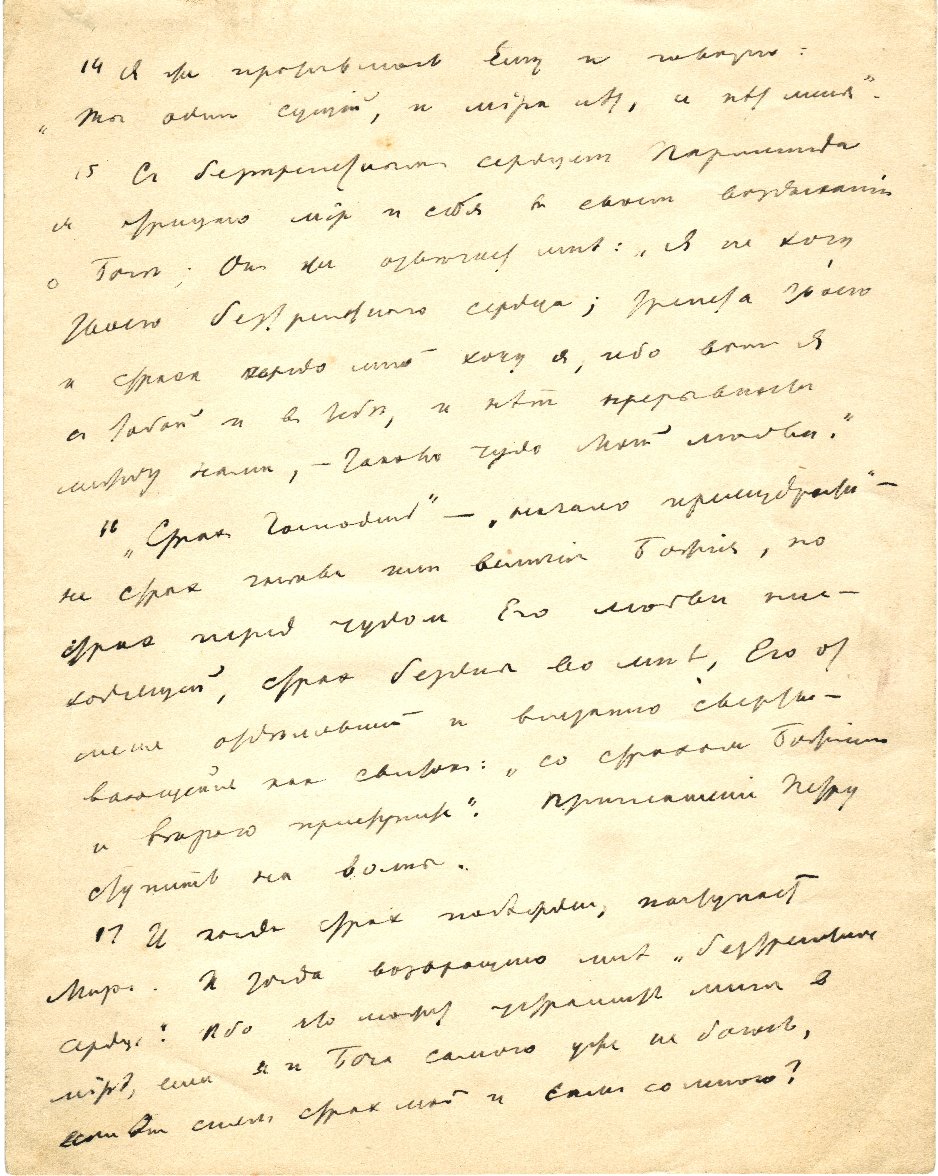 14 Я же противлюсь Ему и говорю:
"Ты один сущий, и міра нѣт, и нѣт меня".
15 Съ безтрепетным сердцем Парменида
я отрицаю мір и себя в своем воздыханіи
о Боге; Он же отвѣчает мнѣ: „Я не хочу
твоего безтрепетного сердца; трепета твоего
и страха передо мной хочу я, ибо вот Я
съ тобой и въ тебѣ, и нѣт прерывности
между нами, – таково чудо Моей любви."
16 „Страх Господень" – „начало премудрости" –
не страх гнѣва или величія Божія, но
страх перед чудом Его любви нис-
ходящей, страх бездны во мнѣ, Его от
меня отдѣлявшей и внезапно сверты-
вающейся как свиток: „со страхом Божіим
и вѣрою приступите". Приглашеніе Петру
ступить на волны.
17 И когда страх побѣжден, наступает
Миръ. И тогда возвращаю мнѣ „безтрепетное
сердце". Ибо что может устрашить меня в
мірѣ, если я и Бога самого уже не боюсь,
если Он снял страх мой и Сам со мною?